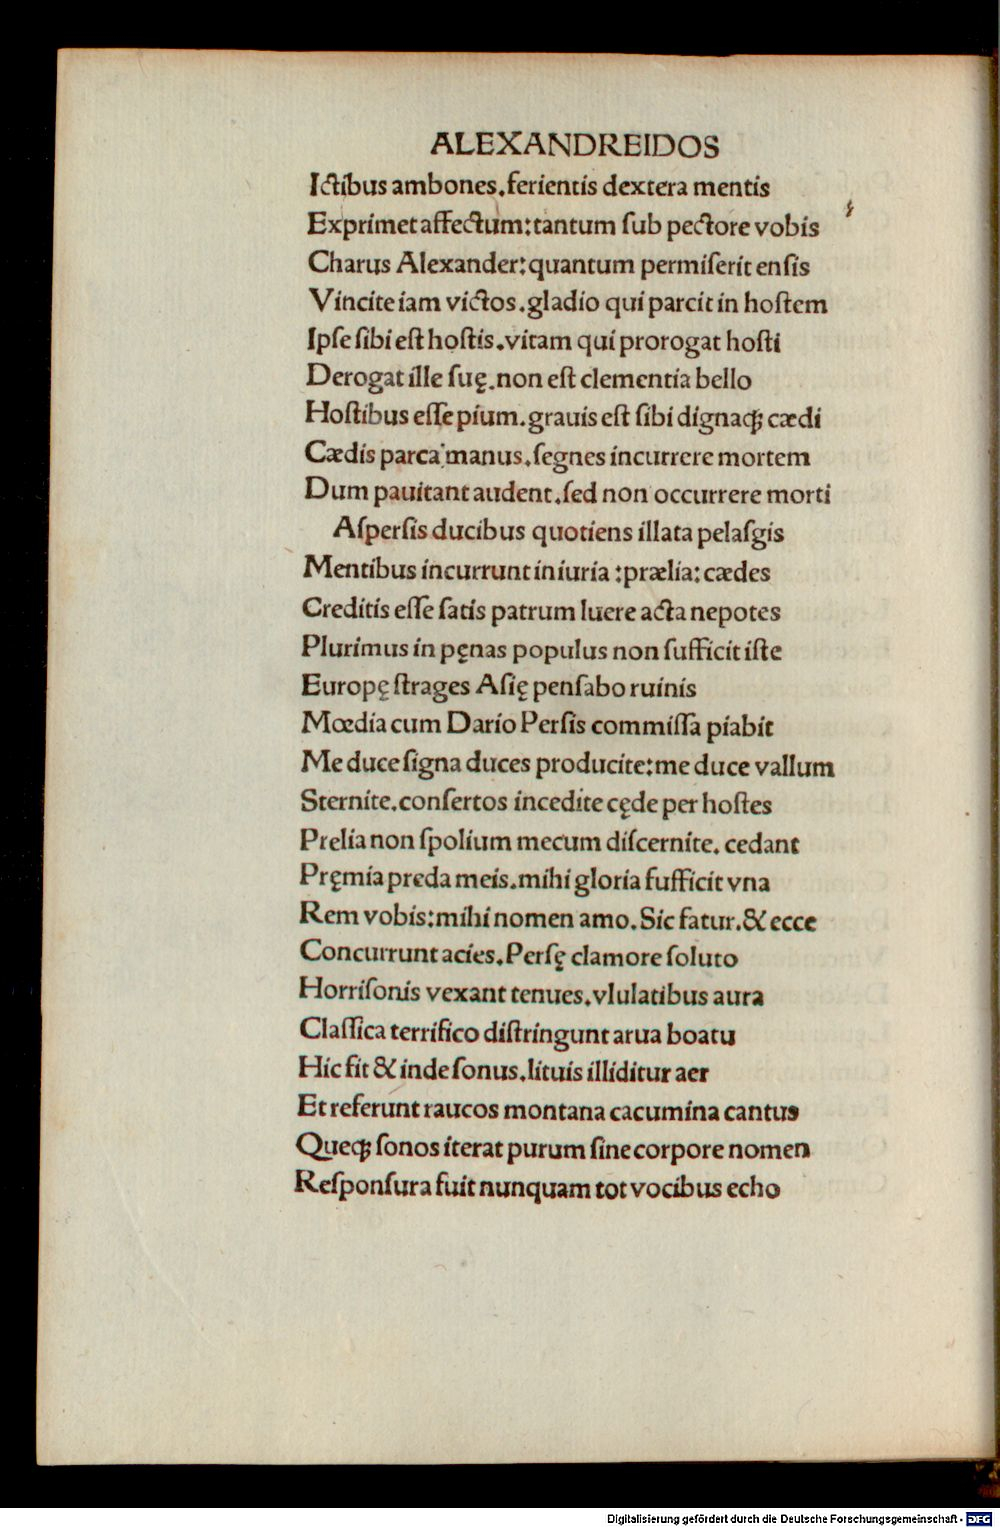 ALEXANDREIDOS
Ictibus ambones.ferientis dextera mentis
Exprimet affectum:tantum ſub pectore vobis
Charus Alexander:quantum permiſerit enſis
Vincite iam victos.gladio qui parcit in hoſtem
Ipſe ſibi eſt hoſtis.vitam qui prorogat hoſti
Derogat ille ſuę.non eſt clementia bello
Hoſtibus eſſe pium.grauis eſt ſibi dignaqꝫ cædi
Cædis parca manus.ſegnes incurrere mortem
Dum pauitant audent.ſed non occurrere morti
Aſperſis ducibus quotiens illata pelaſgis
Mentibus incurrunt iniuria :prælia:cædes
Creditis eſſe ſatis patrum luere acta nepotes
Plurimus in pęnas populus non ſufficit iſte
Europę ſtrages Aſię penſabo ruinis
Mœdia cum Dario Perſis commiſſa piabit
Me duce ſigna duces producite:me duce vallum
Sternite.conſertos incedite cęde per hoſtes
Prelia non ſpolium mecum diſcernite. cedant
Pręmia preda meis.mihi gloria ſufficit vna
Rem vobis:mihi nomen amo.Sic fatur.& ecce
Concurrunt acies.Perſę clamore ſoluto
Horriſonis vexant tenues.vlulatibus aura
Claſſica terrifico diſtringunt arua boatu
Hic fit & inde ſonus.lituis illiditur aer
Et referunt raucos montana cacumina cantus
Queqꝫ ſonos iterat purum ſine corpore nomen
Reſponſura fuit nunquam tot vocibus echo
Digitalisierung gefördert durch die Deutsche Forschungsgemeinschaft - DFG